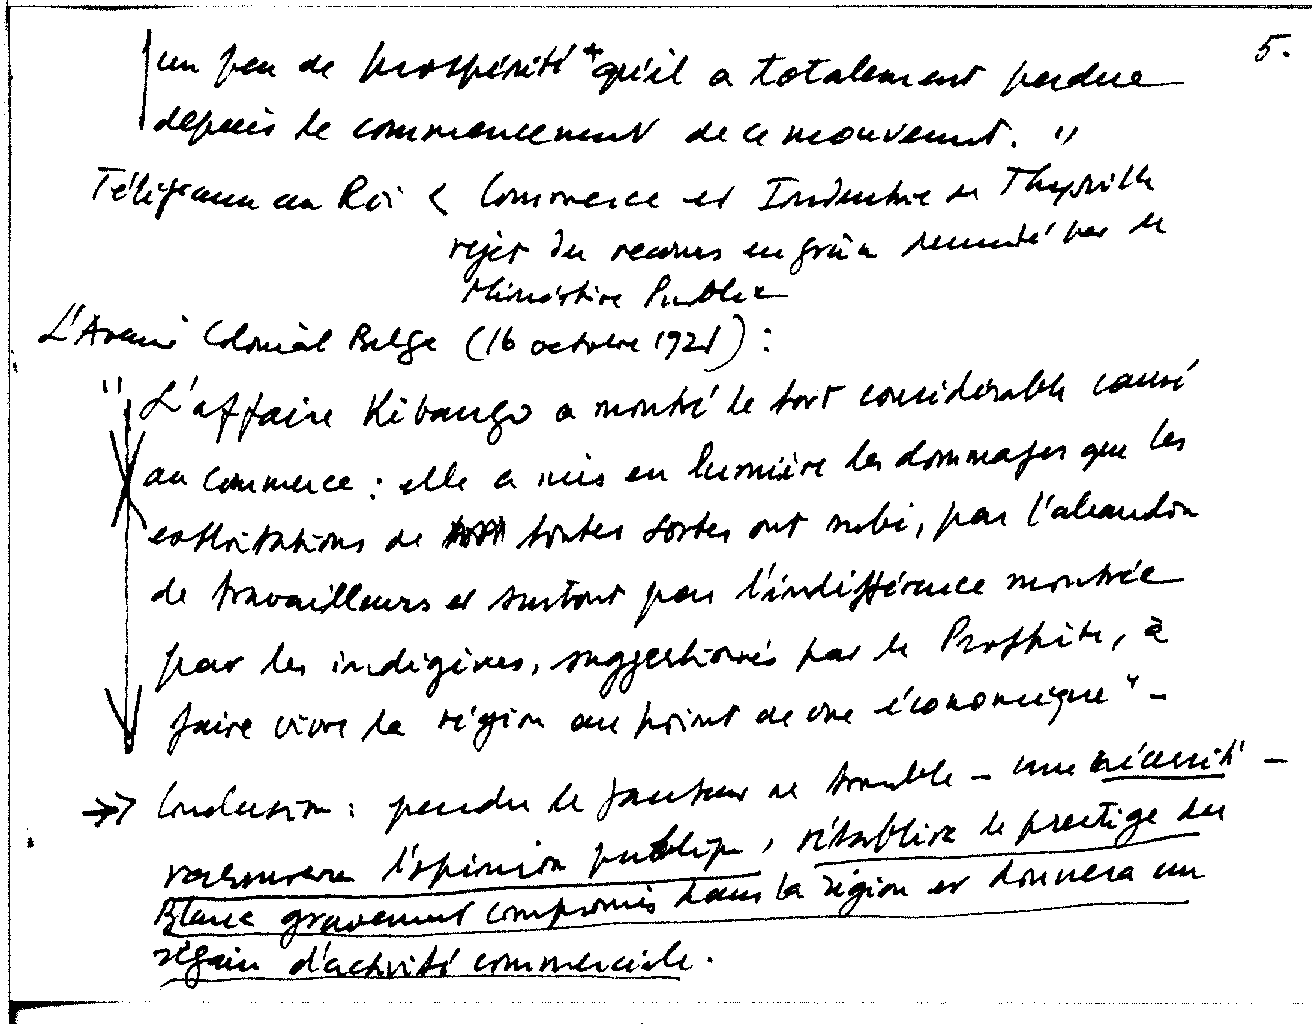 5.
un peu de prospérité qu'il a totalement perdue
depuis le commencement de ce mouvement. "
Télégramme au Roi < Commerce et Industrie de Thysville
rejet du recours en grâce demandé par le
Ministère Public
L'Avenir Colonial Belge (16 octobre 1921) :
" L'affaire Kibango a montré le tort considérable causé
au commerce : elle a mis en lumière les dommages que les
exploitations de toutes sortes ont subi, par l'abandon
de travailleurs et surtout par l'indifférence montrée
par les indigènes, suggestionnés par le Prophète, à
faire vivre la région au point de vue économique" -
→ Conclusion : pendre le fauteur de trouble - une nécessité -
rassurera l'opinion publique, rétablira le prestige du
Blanc gravement compromis dans la région et donnera un
régain d'activité commerciale.